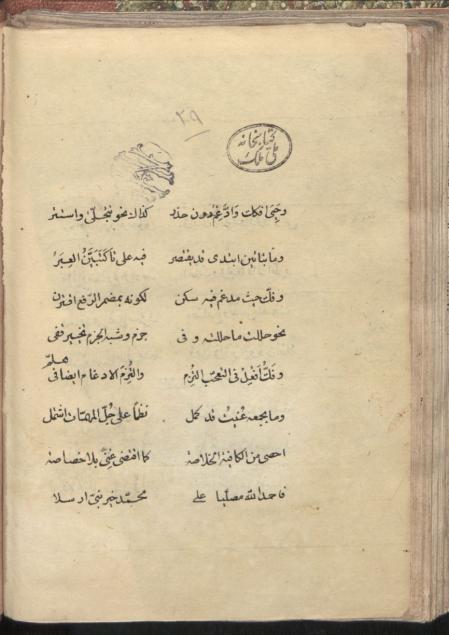 ٢٩
کتابخانه
ملی ملک
وحيي افكك وادّغم دون حذر كذاك نحو تتجلّى واستتر
وما بتائين ابتدى قد يقتصر فيه على تا كتَبَيَّنُ العِبَرُ
وفكّ حيث مدغم فيه سكن لكونه بمضمر الرّفع اقترن
نحو حللت ما حللته وفى جزم وشبه الجزم تخيير قفى
وفكُّ أفعِل فى التعجّب التُزِم والتُزِمَ الادغام ايضا فى هلمّ
وما بجمعه عُنيتُ قد كمل نظمًا على جُلّ المهمّات اشتمل
احصى من الكافية الخلاصه كما اقتضى غنًى بلا خصاصه
فاحمد الله مصلّيا على محمّد خير نبىّ ارسلا